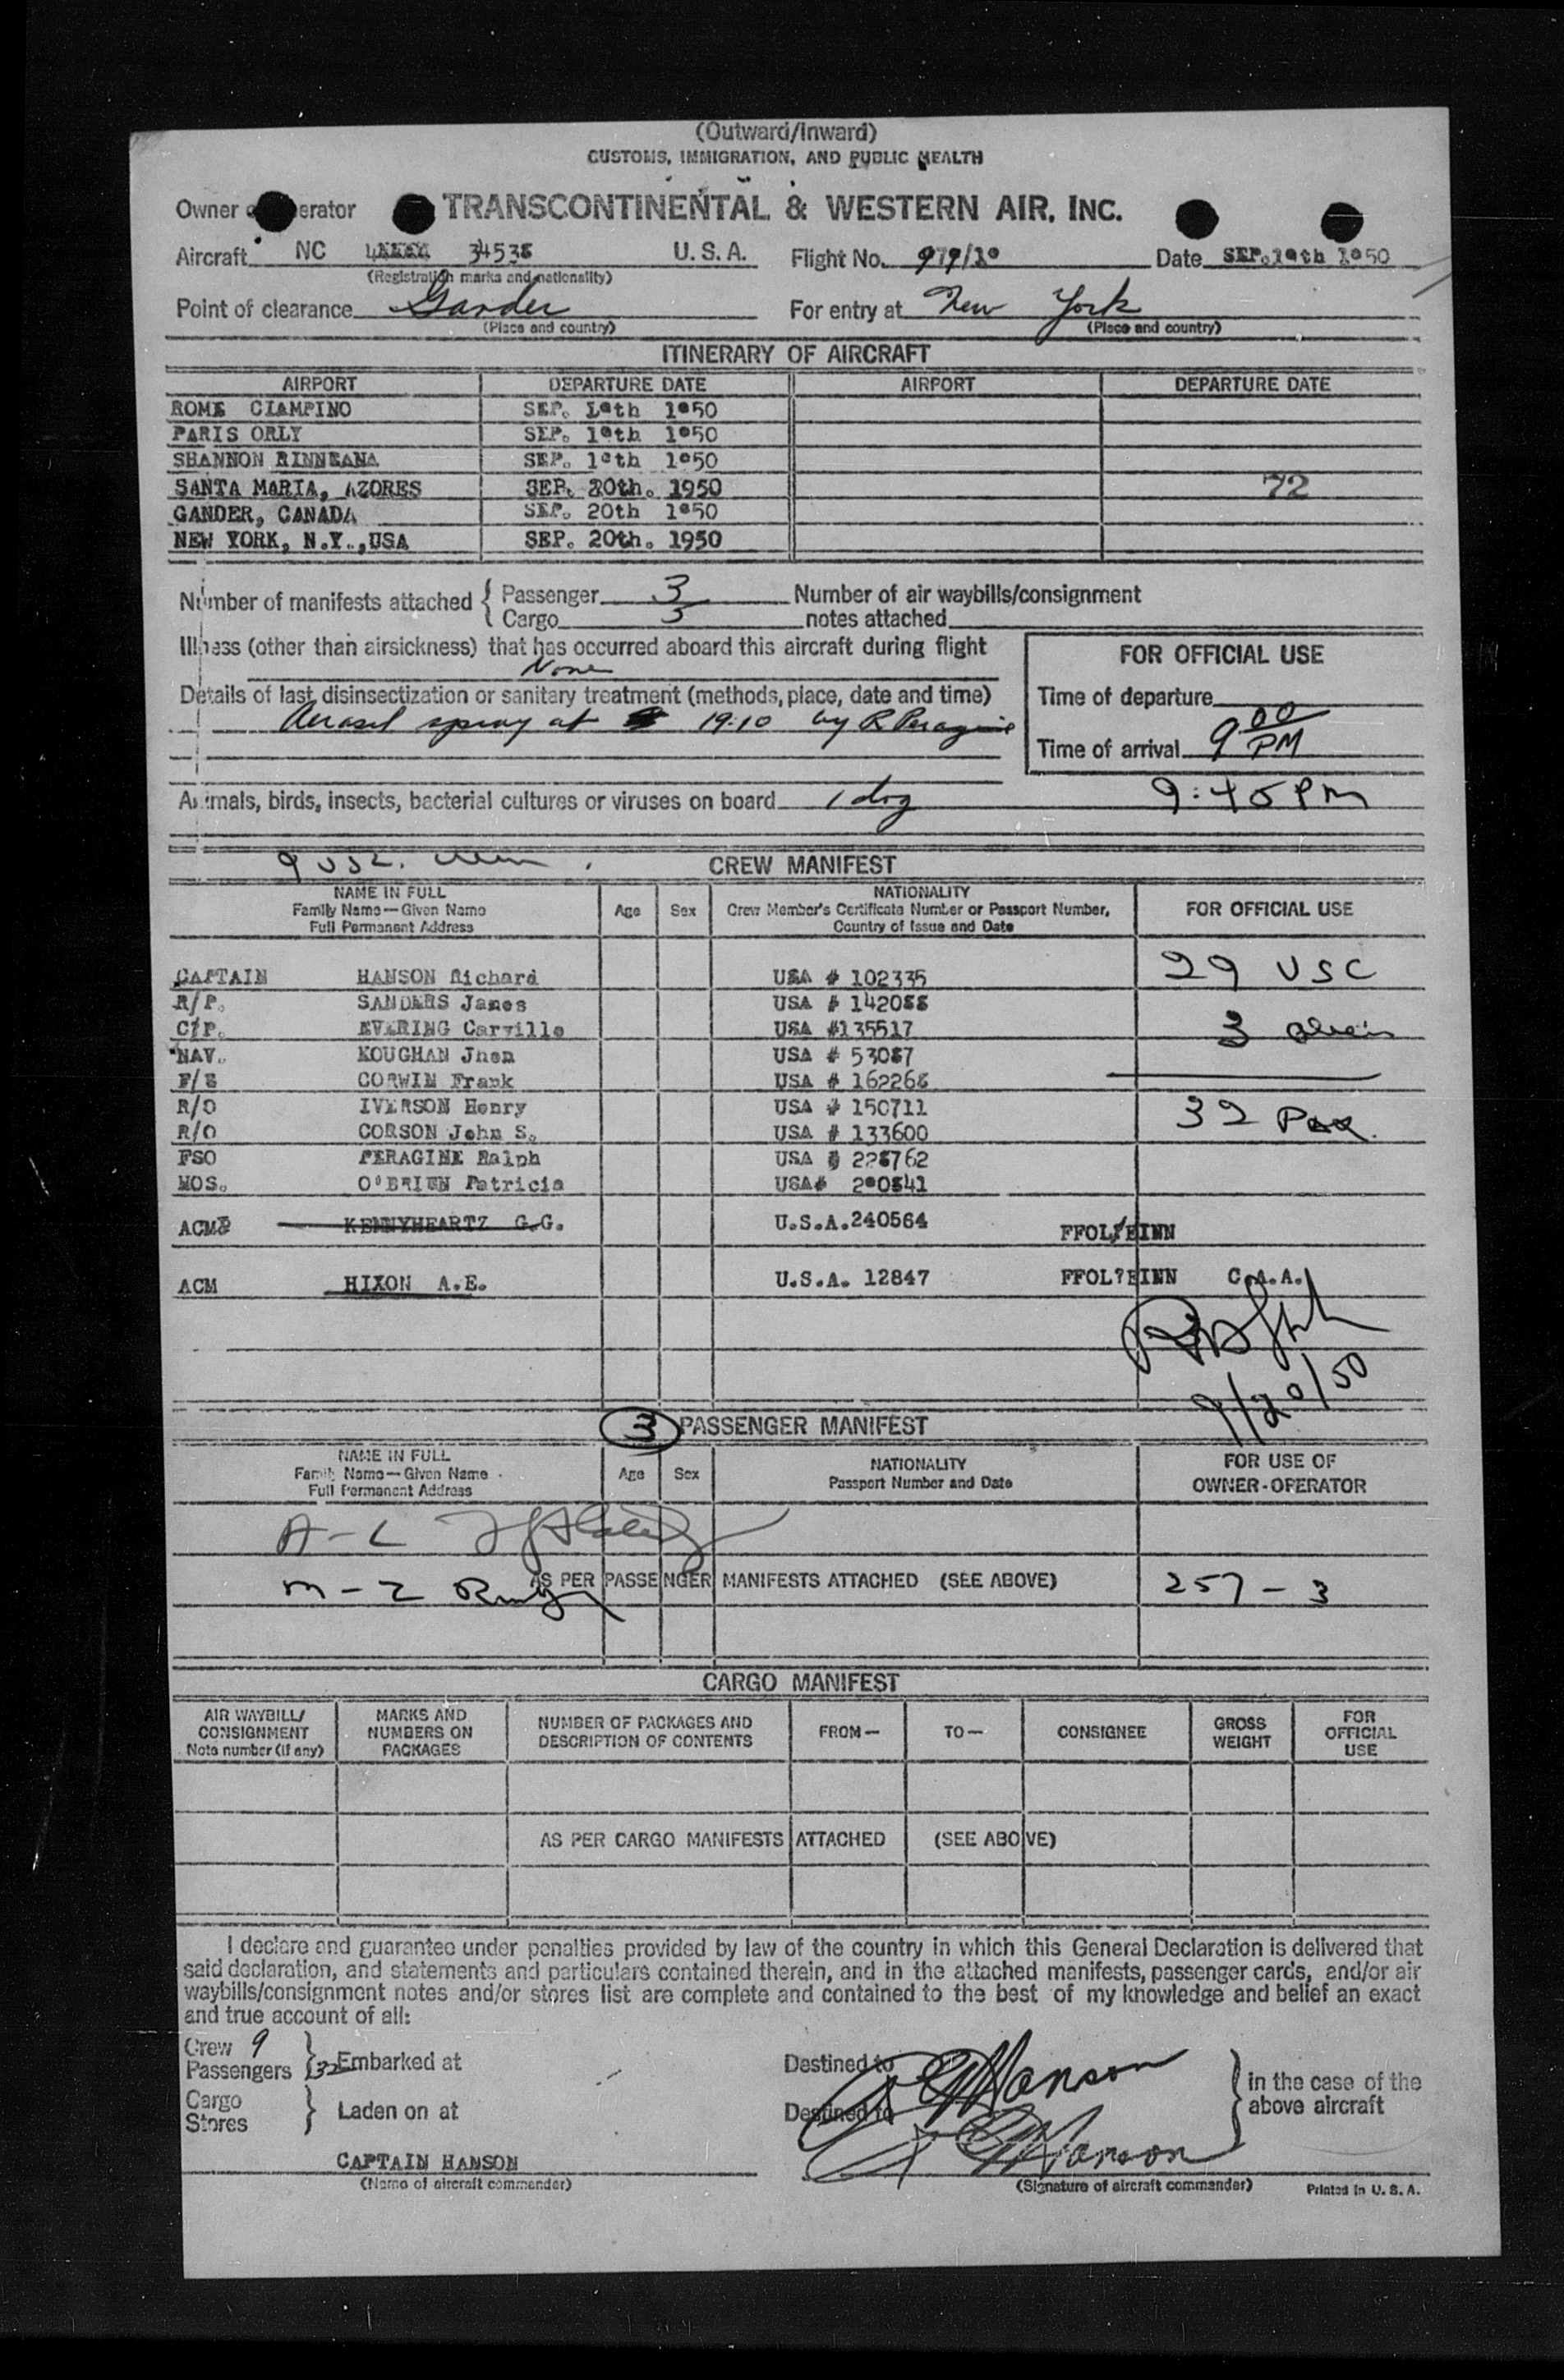 (Outward/Inward)
CUSTOMS, IMMIGRATION, AND PUBLIC HEALTH
Owner erator TRANSCONTINENTAL & WESTERN AIR, INC.
Aircraft NC 34538 U. S. A. Flight No. Date SEP. 19th 1950
(Registration marks and nationality)
Point of clearance Gander For entry at New York
(Place and country) (Place and country)
ITINERARY OF AIRCRAFT
AIRPORT DEPARTURE DATE AIRPORT DEPARTURE DATE
ROME CIAMPINO SEP. 19th 1950
PARIS ORLY SEP. 19th 1950
SHANNON RINNEANA SEP. 19th 1950
SANTA MARIA, AZORES SEP. 20th. 1950 72
GANDER, CANADA SEP. 20th 1950
NEW YORK, N.Y.,USA SEP. 20th. 1950
Number of manifests attached { Passenger 3 Number of air waybills/consignment
Cargo 3 notes attached
Illness (other than airsickness) that has occurred aboard this aircraft during flight
None
FOR OFFICIAL USE
Details of last disinsectization or sanitary treatment (methods, place, date and time)
Time of departure
Aerosol spray at 19:10 by R Peragine
Time of arrival 9 00 PM
Animals, birds, insects, bacterial cultures or viruses on board 1 dog 9:45 PM
9 USC.
CREW MANIFEST
NAME IN FULL
Family Name—Given Name
Full Permanent Address
Age Sex
NATIONALITY
Crew Member's Certificate Number or Passport Number,
Country of Issue and Date
FOR OFFICIAL USE
CAPTAIN HANSON Richard USA # 102335 29 USC
R/P. SANDERS James USA # 142088
C/P. EVERING Carville USA #135517 3
NAV. KOUGHAN Jhon USA # 53087
F/E CORWIN Frank USA # 162268
R/O IVERSON Henry USA # 150711 32 Pax.
R/O CORSON John S. USA # 133600
FSO PERAGINE Ralph USA # 228762
HOS. O'BRIEN Patricia USA# 290841
ACM KENNYHEARTZ G.G. U.S.A.240564 FFOL/EINN
ACM HIXON A.E. U.S.A. 12847 FFOL?EINN C.A.A.
9/20/50
3 PASSENGER MANIFEST
NAME IN FULL
Family Name—Given Name
Full Permanent Address
Age Sex
NATIONALITY
Passport Number and Date
FOR USE OF
OWNER-OPERATOR
A-L
M-Z AS PER PASSENGER MANIFESTS ATTACHED (SEE ABOVE) 257-3
CARGO MANIFEST
AIR WAYBILL/
CONSIGNMENT
Note number (if any)
MARKS AND
NUMBERS ON
PACKAGES
NUMBER OF PACKAGES AND
DESCRIPTION OF CONTENTS
FROM—
TO—
CONSIGNEE
GROSS
WEIGHT
FOR
OFFICIAL
USE
AS PER CARGO MANIFESTS ATTACHED (SEE ABOVE)
I declare and guarantee under penalties provided by law of the country in which this General Declaration is delivered that
said declaration, and statements and particulars contained therein, and in the attached manifests, passenger cards, and/or air
waybills/consignment notes and/or stores list are complete and contained to the best of my knowledge and belief an exact
and true account of all:
Crew 9
Passengers 32 } Embarked at Destined to
Cargo
Stores } Laden on at Destined to
} in the case of the
above aircraft
Hanson
Hanson
CAPTAIN HANSON
(Name of aircraft commander) (Signature of aircraft commander) Printed in U. S. A.